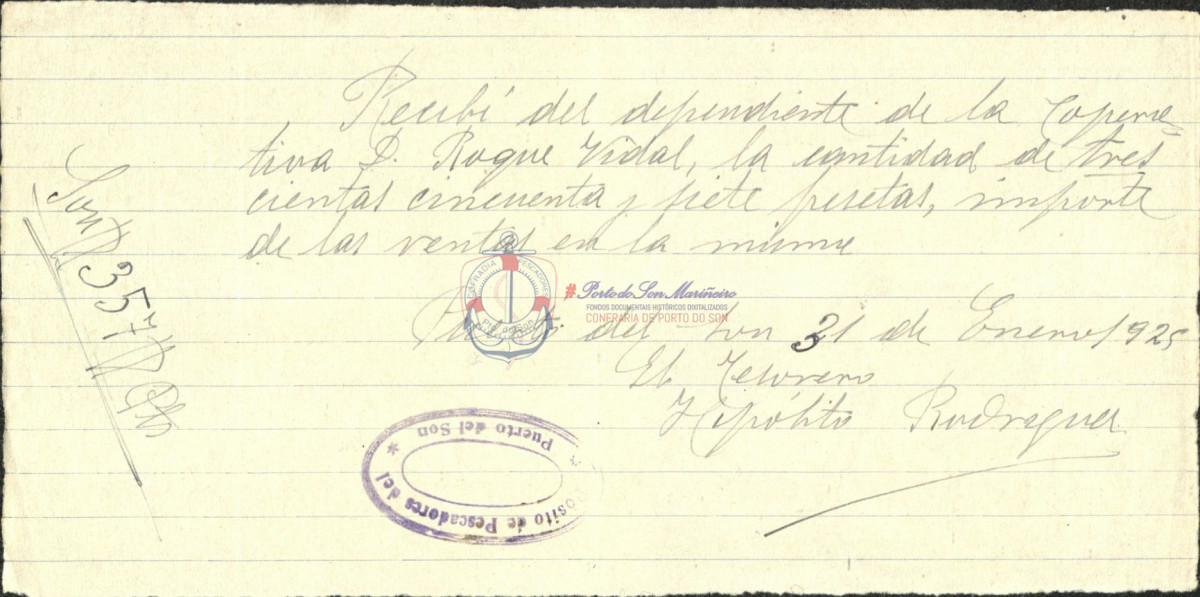 Recibí del dependiente de la Copera=
tiva D. Roque Vidal, la cantidad de tres
cientas cincuenta y siete pesetas, importe
de las ventas en la misma
Puerto del Son 31 de Enero 1925
El Tesorero
Hipólito Rodriguez
Son 357 Pts
COFRADIA PESCADORES
Pto. do Son
#Porto do Son Mariñeiro
FONDOS DOCUMENTAIS HISTÓRICOS DIXITALIZADOS
CONFRARÍA DE PORTO DO SON
osito de Pescadores del
Puerto del Son